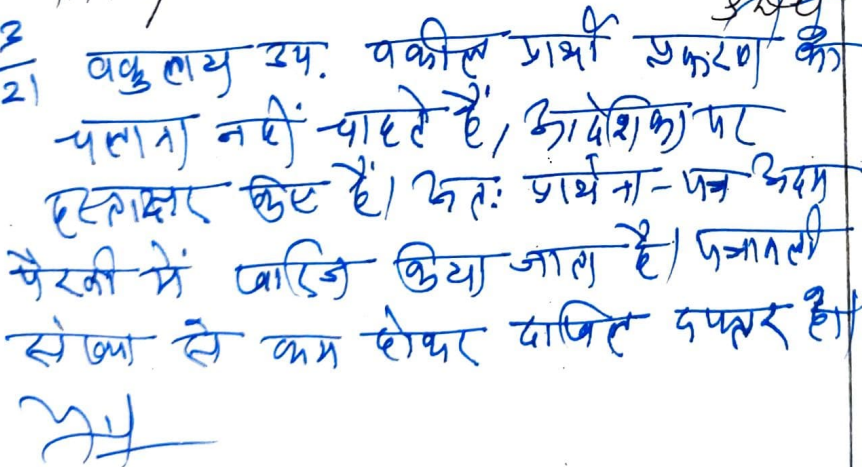 3/21 वकुलाय उप. वकील प्रार्थी प्रकरण को
चलाना नहीं चाहते हैं, आदेशिका पर
हस्ताक्षर किए हैं। अतः प्रार्थना-पत्र अदम
पैरवी में खारिज किया जाता है। पत्रावली
संख्या से कम होकर दाखिल दफ्तर हो।